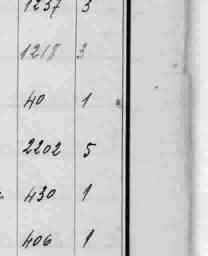 1237 3
1218 3
40 1
2202 5
430 1
406 1